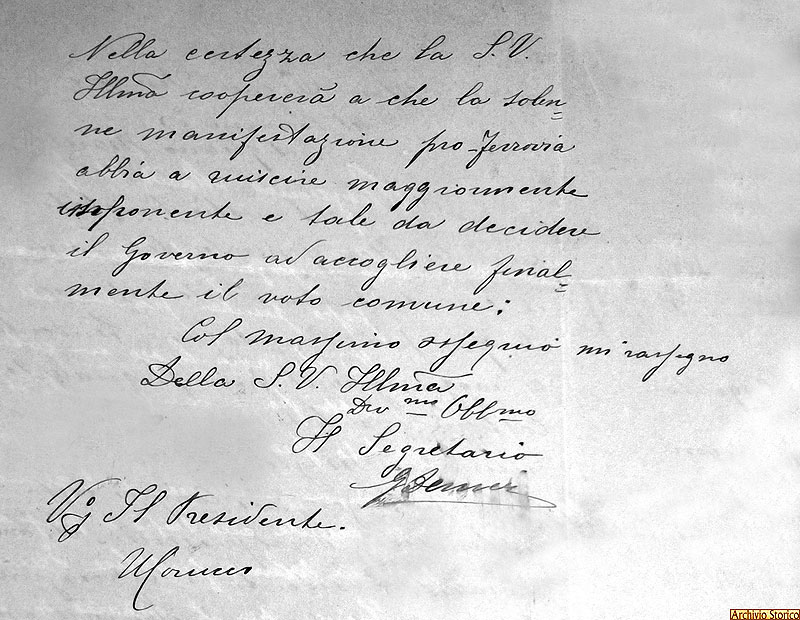 Nella certezza che la S. V.
Illma coopererà a che la solen=
ne manifestazione pro-Ferrovia
abbia a riuscire maggiormente
imponente e tale da decidere
il Governo ad accogliere final=
mente il voto comune:
Col massimo ossequio mi rassegno
Della S. V. Illma
Dev mo Obbmo
Il Segretario
Vo Il Presidente.
Archivio Storico